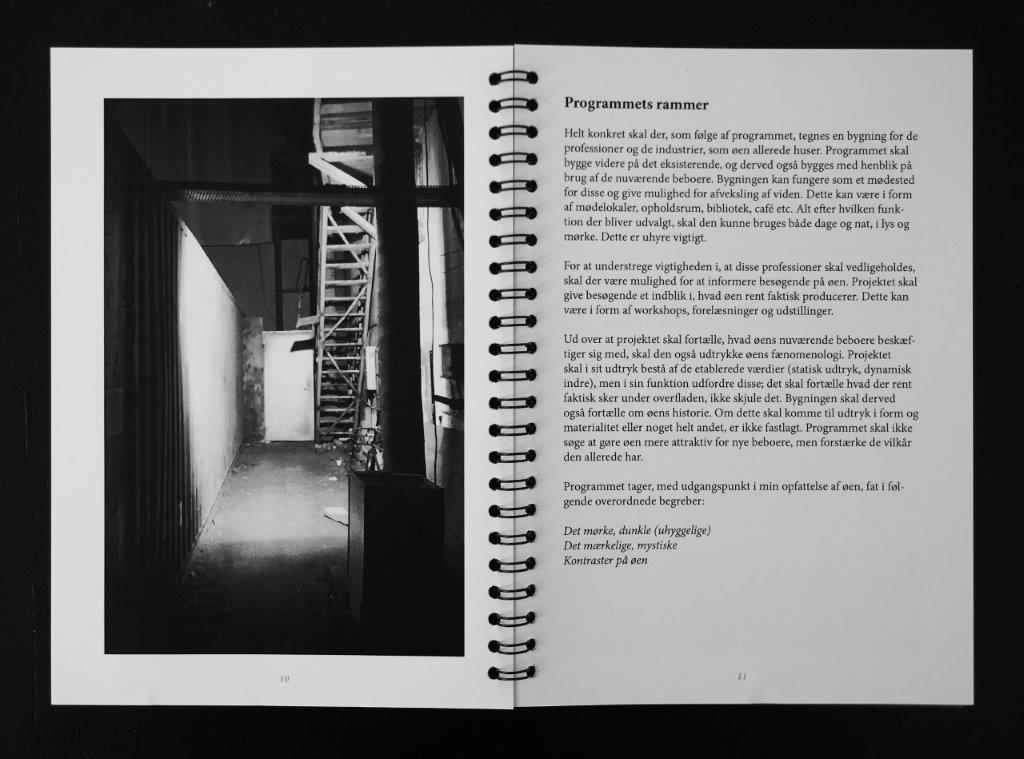 Programmets rammer
Helt konkret skal der, som følge af programmet, tegnes en bygning for de
professioner og de industrier, som øen allerede huser. Programmet skal
bygge videre på det eksisterende, og derved også bygges med henblik på
brug af de nuværende beboere. Bygningen kan fungere som et mødested
for disse og give mulighed for afveksling af viden. Dette kan være i form
af mødelokaler, opholdsrum, bibliotek, café etc. Alt efter hvilken funk-
tion der bliver udvalgt, skal den kunne bruges både dage og nat, i lys og
mørke. Dette er uhyre vigtigt.
For at understrege vigtigheden i, at disse professioner skal vedligeholdes,
skal der være mulighed for at informere besøgende på øen. Projektet skal
give besøgende et indblik i, hvad øen rent faktisk producerer. Dette kan
være i form af workshops, forelæsninger og udstillinger.
Ud over at projektet skal fortælle, hvad øens nuværende beboere beskæf-
tiger sig med, skal den også udtrykke øens fænomenologi. Projektet
skal i sit udtryk bestå af de etablerede værdier (statisk udtryk, dynamisk
indre), men i sin funktion udfordre disse; det skal fortælle hvad der rent
faktisk sker under overfladen, ikke skjule det. Bygningen skal derved
også fortælle om øens historie. Om dette skal komme til udtryk i form og
materialitet eller noget helt andet, er ikke fastlagt. Programmet skal ikke
søge at gøre øen mere attraktiv for nye beboere, men forstærke de vilkår
den allerede har.
Programmet tager, med udgangspunkt i min opfattelse af øen, fat i føl-
gende overordnede begreber:
Det mørke, dunkle (uhyggelige)
Det mærkelige, mystiske
Kontraster på øen
10
11